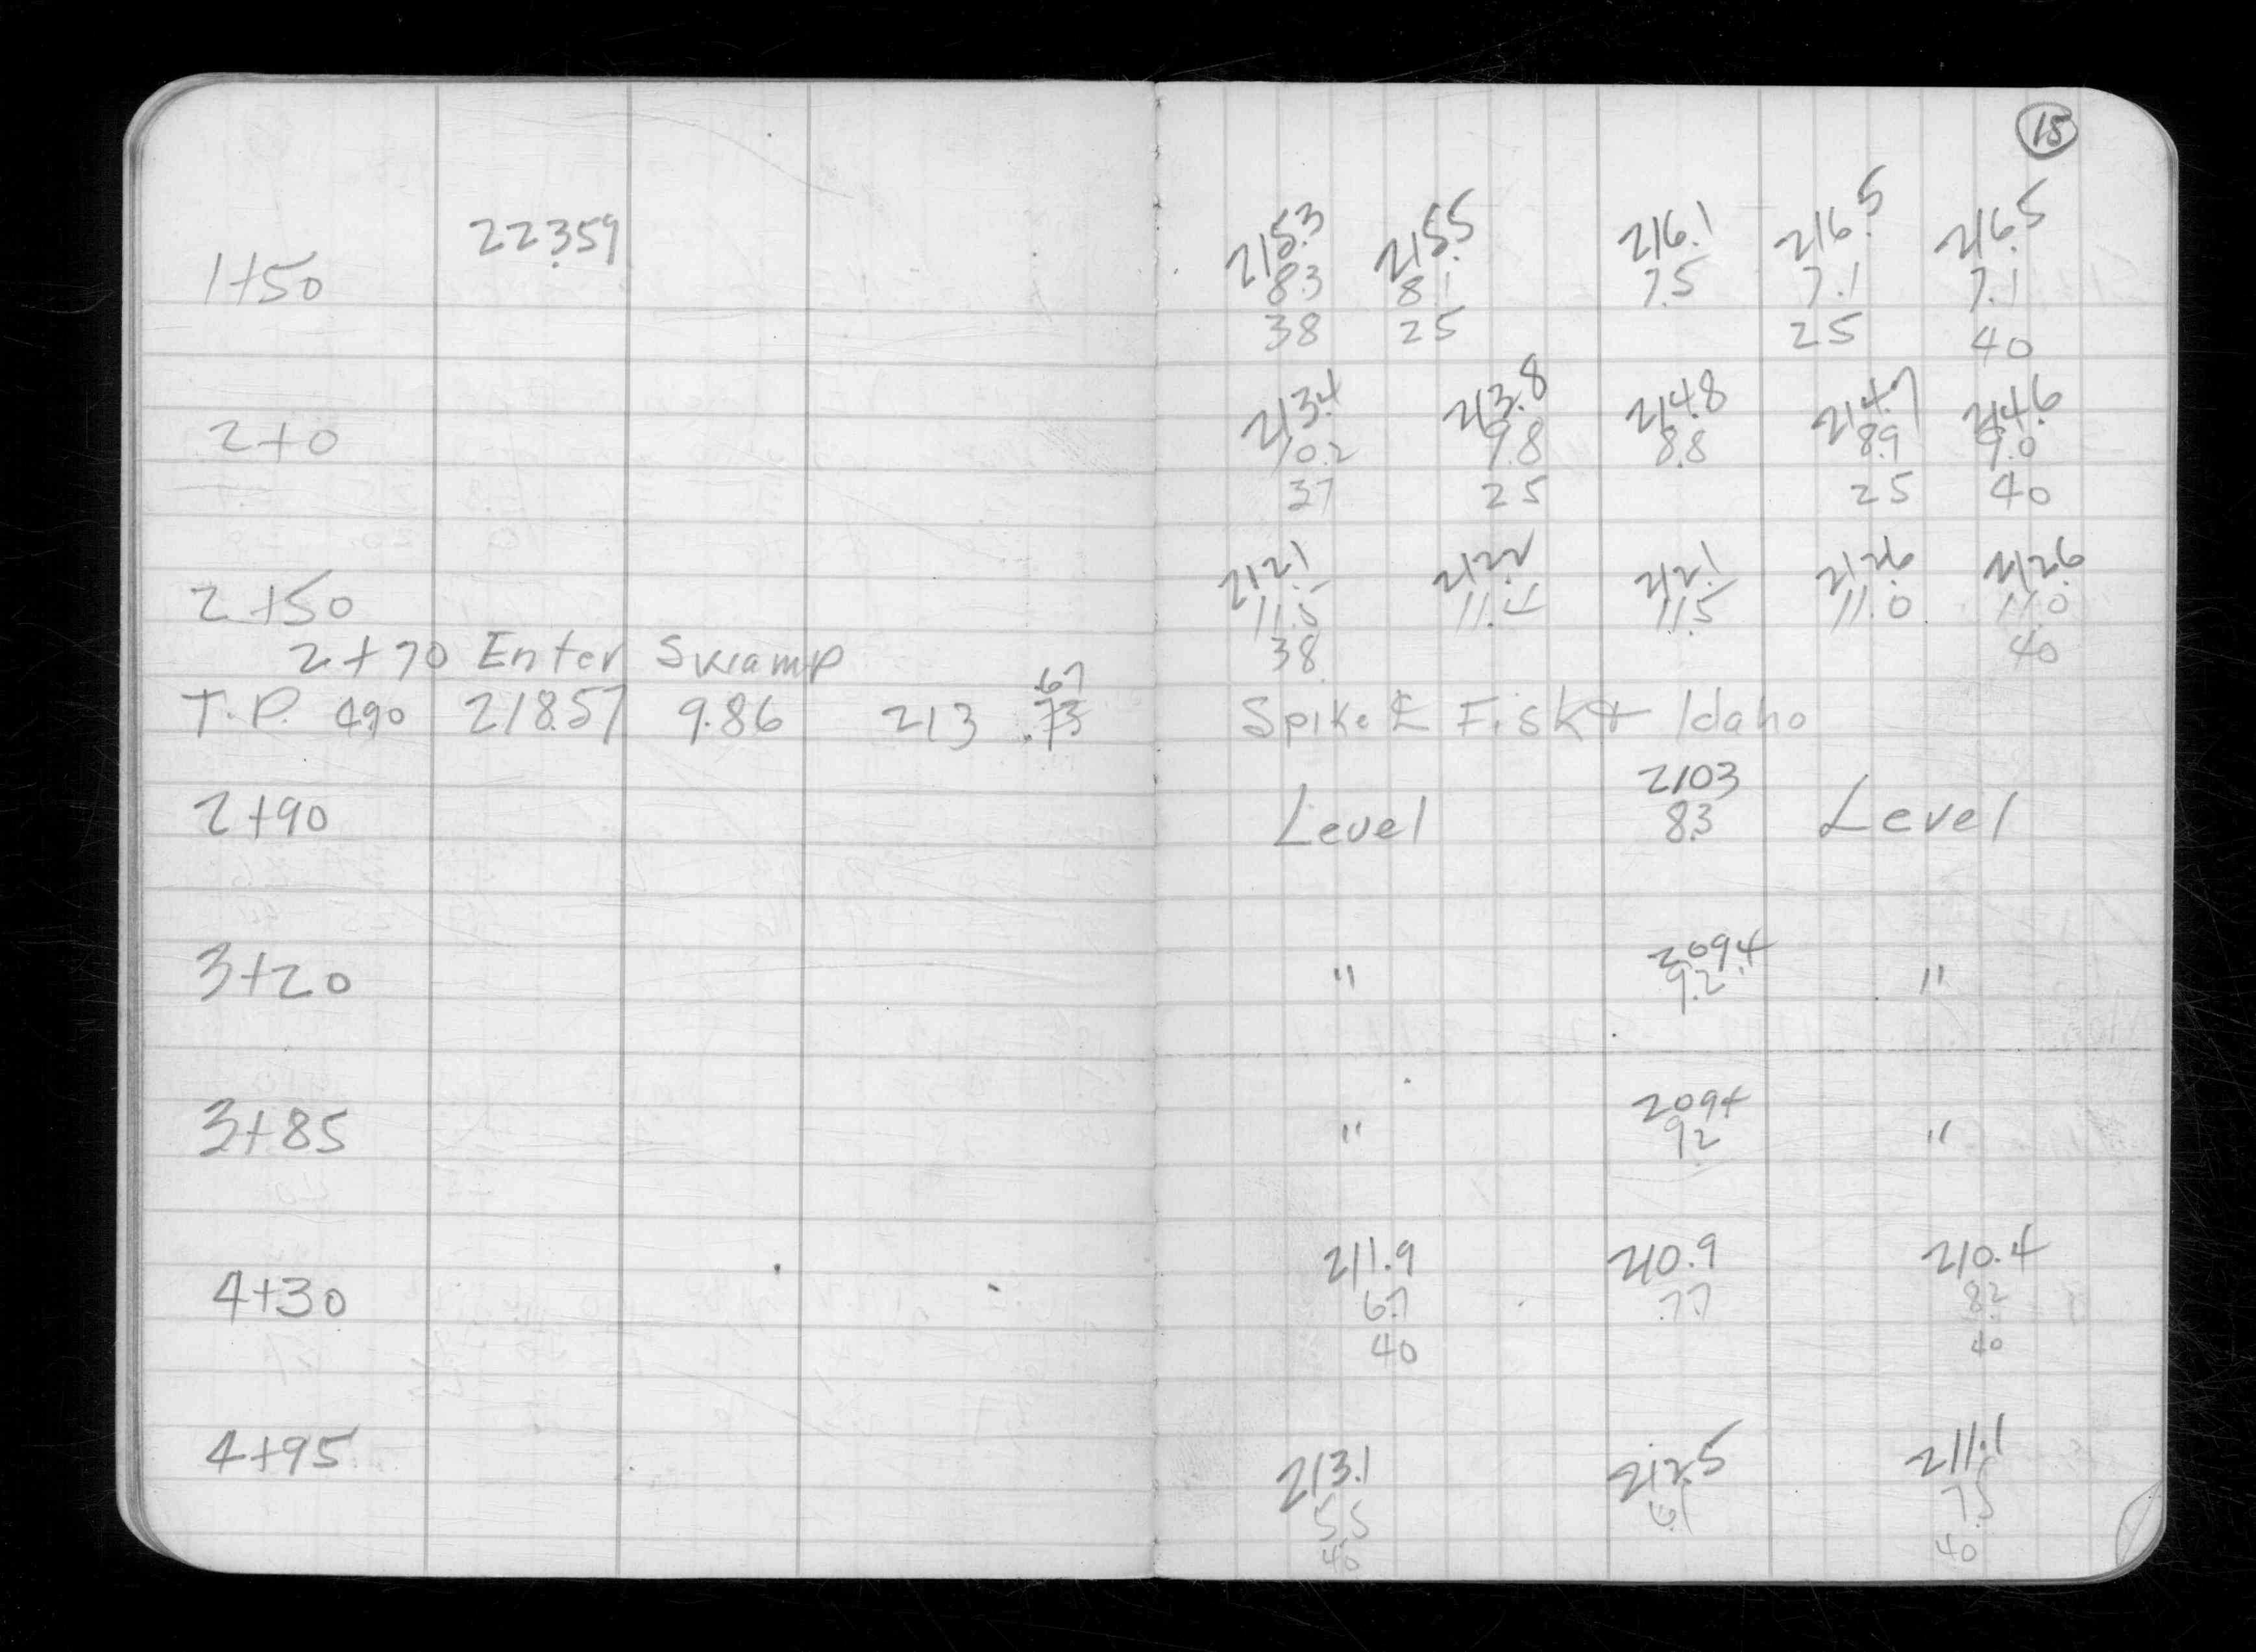 15
22359
215.3 215.5 216.1 216.5 216.5
1+50 8.3 8.1 7.5 7.1 7.1
38 25 25 40
213.4 213.8 214.8 214.7 214.6
2+0 10.2 9.8 8.8 8.9 9.0
37 25 25 40
212.1 212.2 212.1 212.6 212.6
2+50 11.5 11.4 11.5 11.0 11.0
38 40
2+70 Enter Swamp
.67
T.P. 490 218.57 9.86 213 .73 Spike ℄ Fisk + Idaho
2103
2+90 Level 8.3 Level
209.4
3+20 " 9.2 "
2094
3+85 " 92 "
211.9 210.9 210.4
4+30 6.7 7.7 8.2
40 40
4+95 213.1 212.5 211.1
5.5 6.1 7.5
40 40